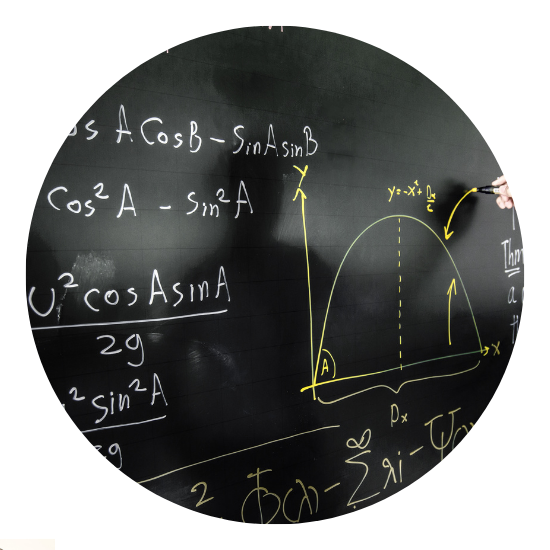 os A CosB - SinA sinB
Cos² A - sin² A
U² cos A sin A
2g
² sin² A
2g
Y
y = -x² + Dx
6
A
X
Dx
Thm
a
2 Φ(λ) - ∞ Σ λi - Ψ(